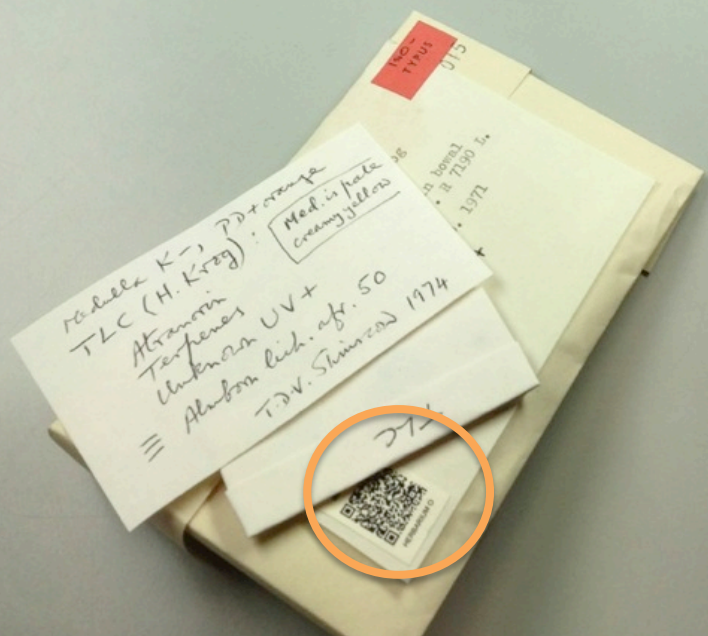 ISO-
TYPUS
015
og
n bowal
. H 7190 L.
. 1971
Medulla K-, PD+ orange
TLC (H. Krog):
Med. is pale
creamy yellow
Atranorin
Terpenes
Unknown UV+
≡ Almborn lich. afr. 50
T.D.V. Swinscow 1974
TLC
HERBARIUM O